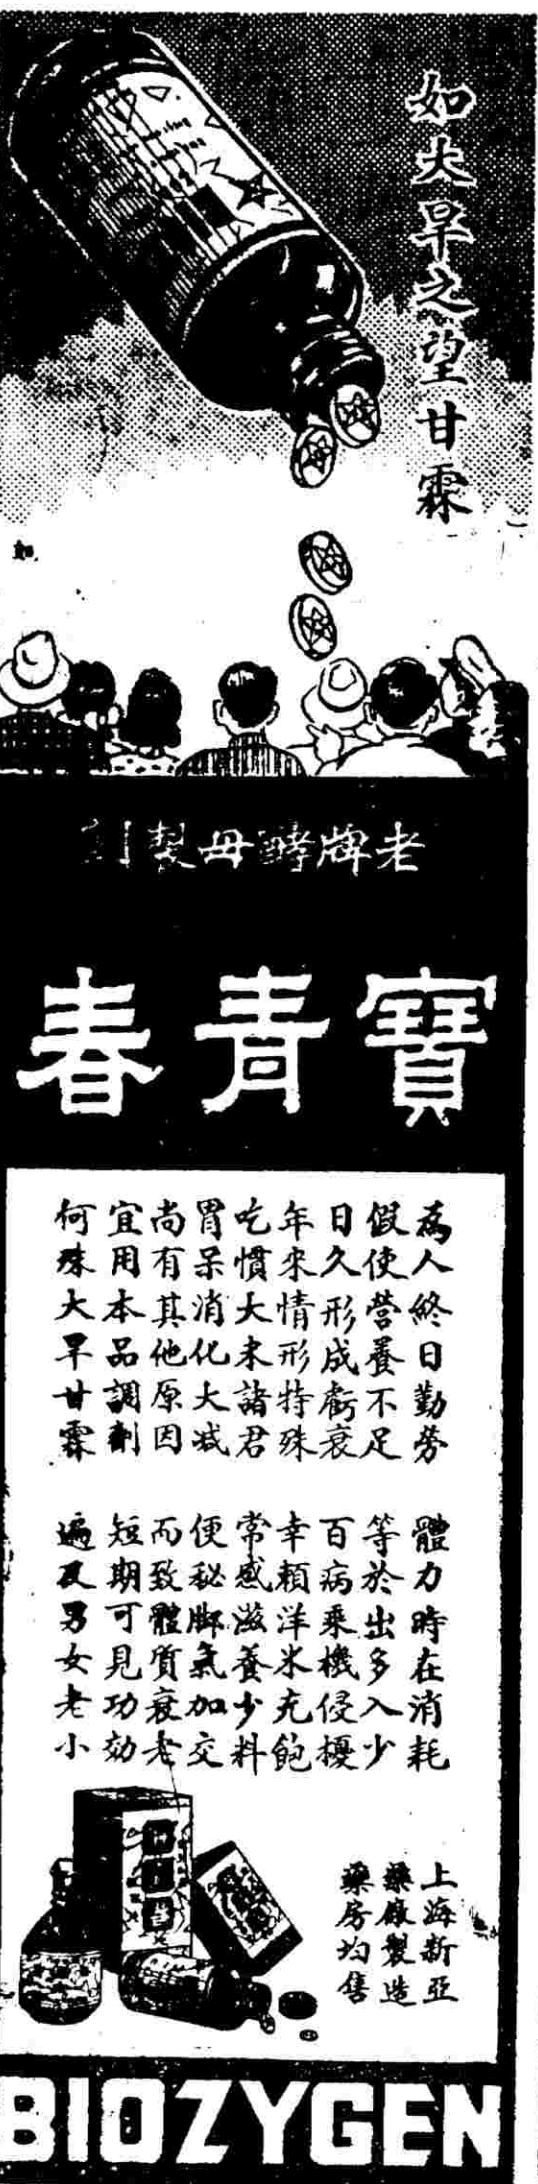 如大旱之望甘霖
老牌酵母製劑
寶青春
為人終日勤勞 體力時在消耗
假使營養不足 等於出多入少
日久形成虧衰 百病乘機侵擾
年來情形特殊 幸賴洋米充飽
吃慣大米諸君 常感滋養少料
胃呆消化大减 便秘脚氣加交
尚有其他原因 而致體質衰老
宜用本品調劑 短期可見功効
何殊大旱甘霖 遍及男女老小
上海新亞
藥廠製造
藥房均售
BIOZYGEN